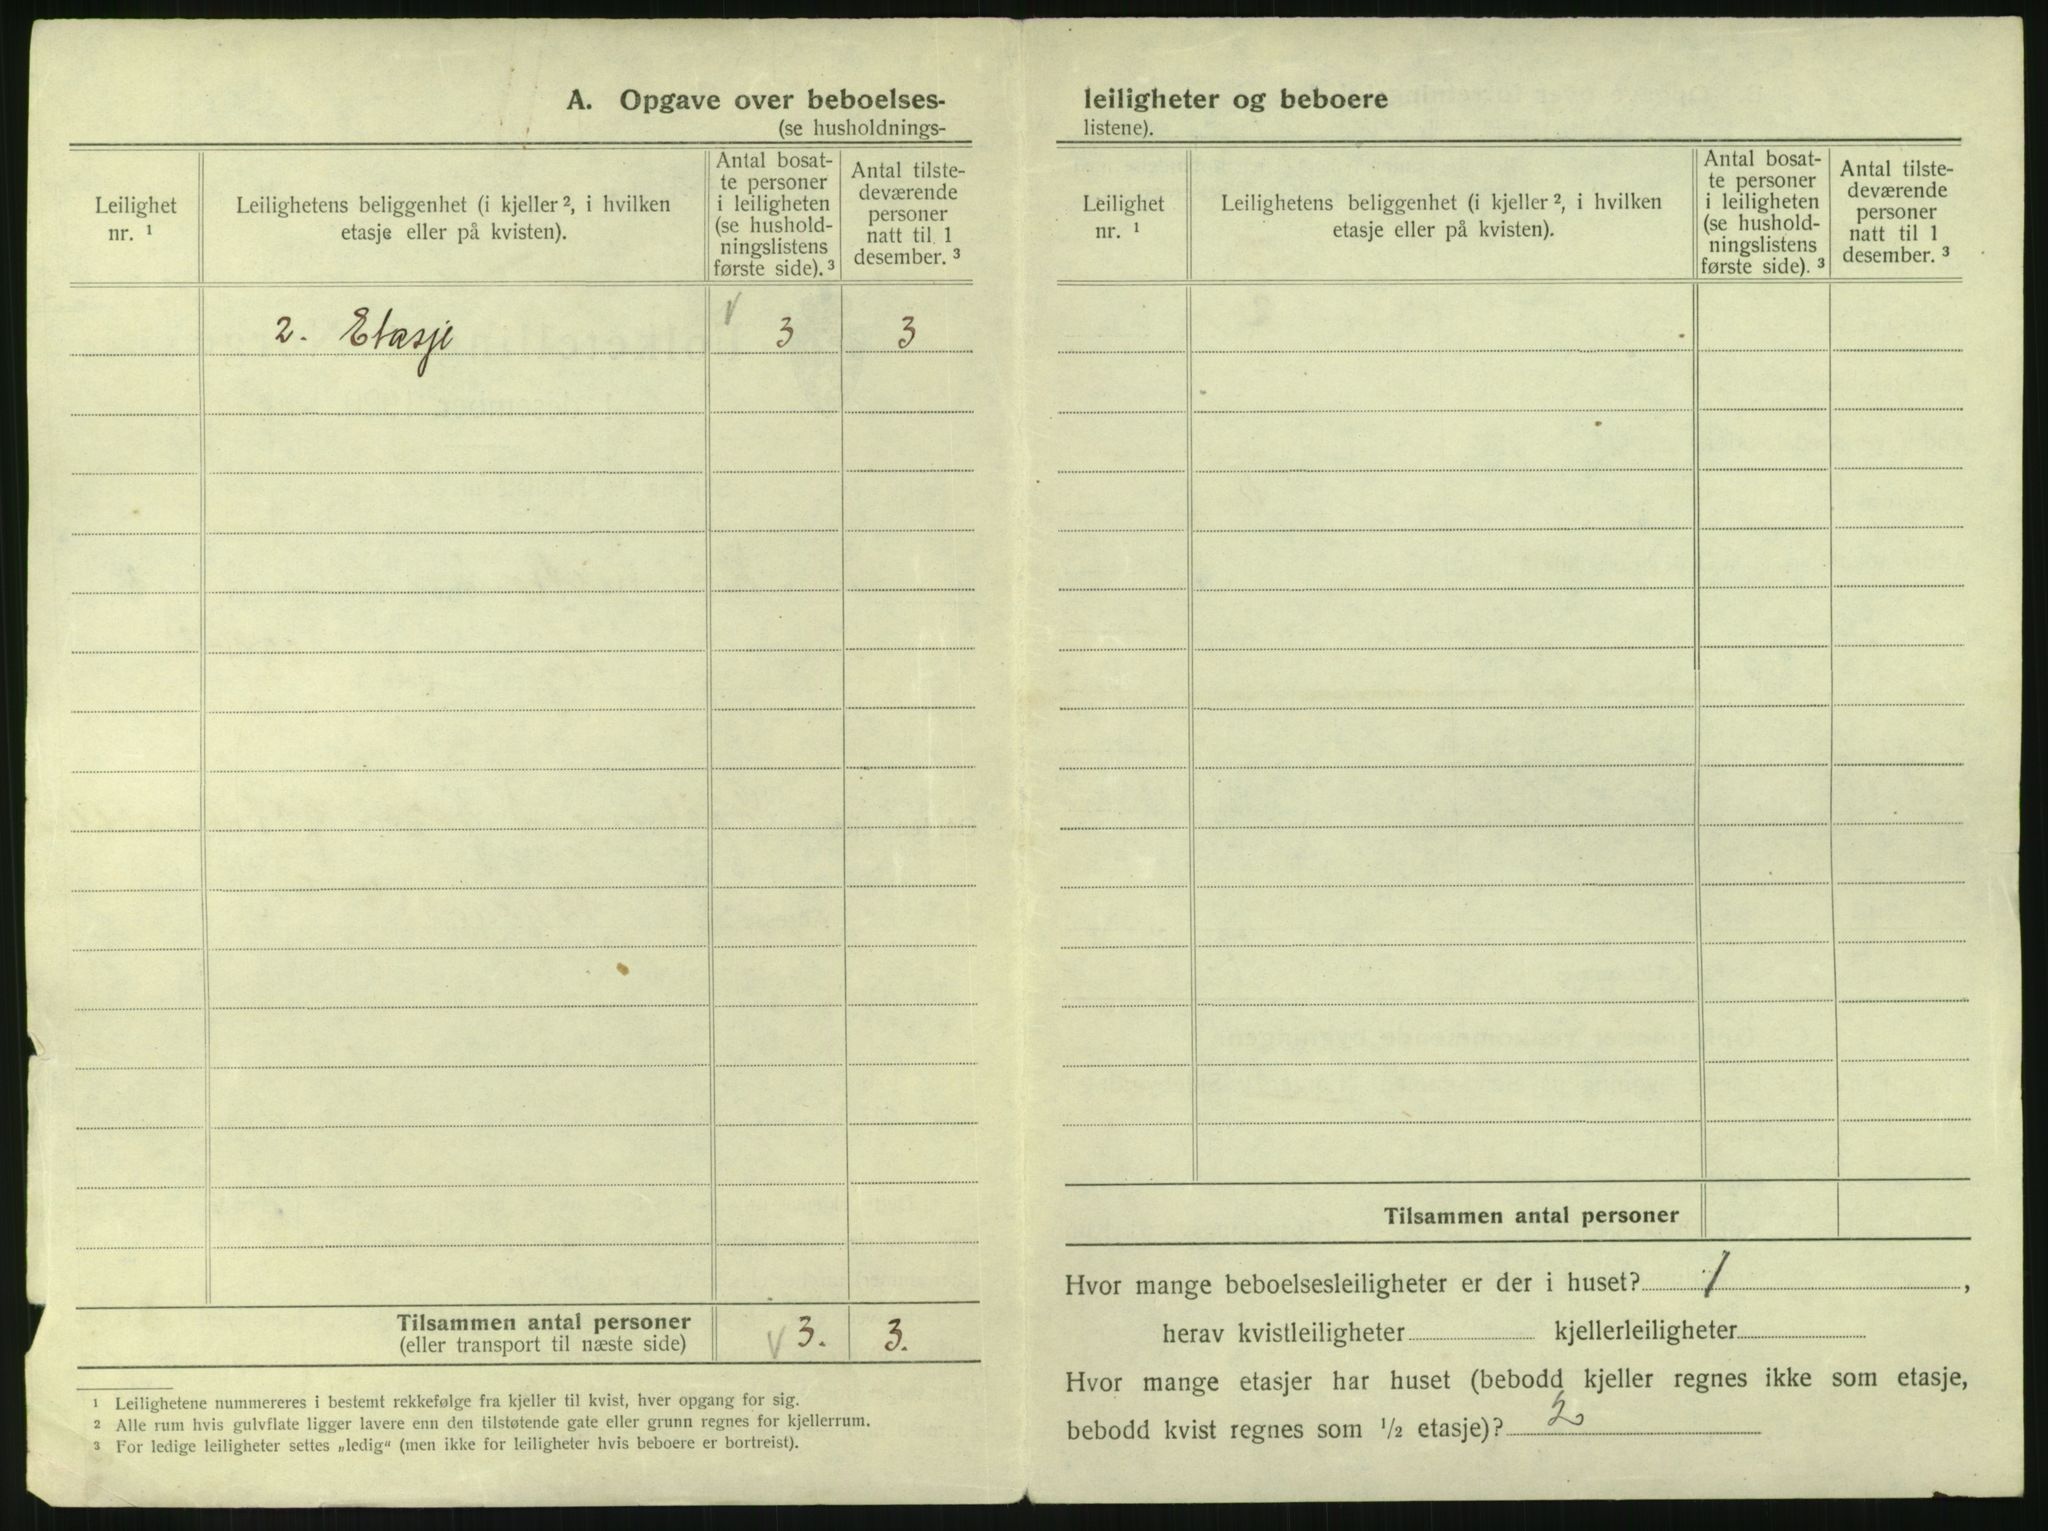 A. Opgave over beboelses-
(se husholdnings-
Leilighet
nr. ¹
Leilighetens beliggenhet (i kjeller ², i hvilken
etasje eller på kvisten).
Antal bosat-
te personer
i leiligheten
(se hushold-
ningslistens
første side). ³
Antal tilste-
deværende
personer
natt til 1
desember. ³
2. Etasje 3 3
Tilsammen antal personer
(eller transport til næste side)
3. 3.
¹ Leilighetene nummereres i bestemt rekkefølge fra kjeller til kvist, hver opgang for sig.
² Alle rum hvis gulvflate ligger lavere enn den tilstøtende gate eller grunn regnes for kjellerrum.
³ For ledige leiligheter settes „ledig“ (men ikke for leiligheter hvis beboere er bortreist).
leiligheter og beboere
listene).
Leilighet
nr. ¹
Leilighetens beliggenhet (i kjeller ², i hvilken
etasje eller på kvisten).
Antal bosat-
te personer
i leiligheten
(se hushold-
ningslistens
første side). ³
Antal tilste-
deværende
personer
natt til 1
desember. ³
Tilsammen antal personer
Hvor mange beboelsesleiligheter er der i huset? 1,
herav kvistleiligheter kjellerleiligheter
Hvor mange etasjer har huset (bebodd kjeller regnes ikke som etasje,
bebodd kvist regnes som ½ etasje)? 2